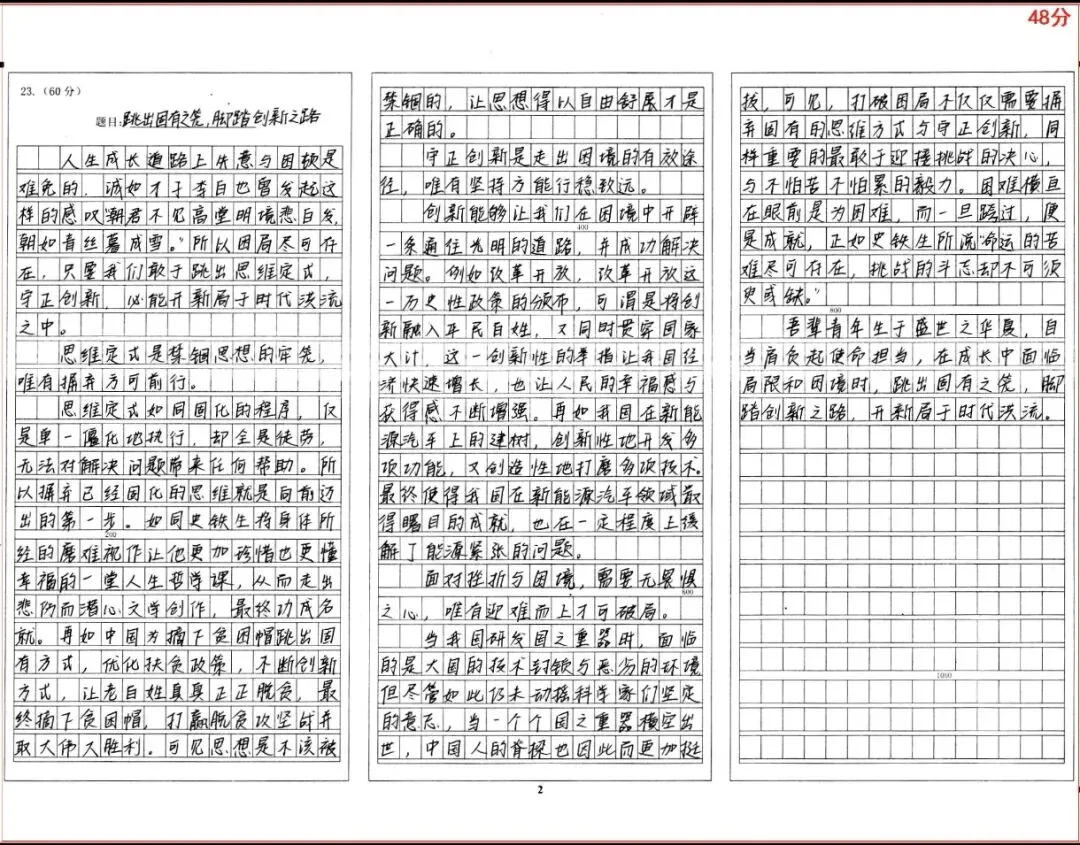 48分
23.（60分）
题目:跳出固有之笼,脚踏创新之路
人生成长道路上失意与困顿是
难免的，诚如才子李白也曾发起这
样的感叹"君不见高堂明镜悲白发，
朝如青丝暮成雪。"所以困局尽可存
在，只要我们敢于跳出思维定式，
守正创新，必能开新局于时代洪流
之中。
思维定式是禁锢思想的牢笼，
唯有摒弃方可前行。
思维定式如同固化的程序，仅
是单一僵化地执行，却全是徒劳，
无法对解决问题带来任何帮助。所
以摒弃已经固化的思维就是向前迈
出的第一步。如同史铁生将身体所
200
经的磨难视作让他更加珍惜也更懂
幸福的一堂人生哲学课，从而走出
悲伤而潜心文学创作，最终功成名
就。再如中国为摘下贫困帽跳出固
有方式，优化扶贫政策，不断创新
方式，让老百姓真真正正脱贫，最
终摘下贫困帽，打赢脱贫攻坚战并
取大伟大胜利。可见思想是不该被
禁锢的，让思想得以自由舒展才是
正确的。
守正创新是走出困境的有效途
径，唯有坚持方能行稳致远。
创新能够让我们在困境中开辟
400
一条通往光明的道路，并成功解决
问题。例如改革开放，改革开放这
一历史性政策的颁布，可谓是将创
新融入平民百姓，又同时贯穿国家
大计，这一创新性的举措让我国经
济快速增长，也让人民的幸福感与
获得感不断增强。再如我国在新能
源汽车上的建树，创新性地开发多
项功能，又创造性地打磨多项技术。
最终使得我国在新能源汽车领域取
得瞩目的成就，也在一定程度上缓
解了能源紧张的问题。
面对挫折与困境，需要无畏惧
600
之心，唯有迎难而上才可破局。
当我国研发国之重器时，面临
的是大国的技术封锁与恶劣的环境
但尽管如此仍未动摇科学家们坚定
的意志，当一个个国之重器横空出
世，中国人的脊梁也因此而更加挺
拔，可见，打破困局不仅仅需要摒
弃固有的思维方式与守正创新，同
样重要的最敢于迎接挑战的决心，
与不怕苦不怕累的毅力。困难横亘
在眼前是为困难，而一旦跨过，便
是成就，正如史铁生所流"命运的苦
难尽可存在，挑战的斗志却不可须
臾或缺。"
800
吾辈青年生于盛世之华夏，自
当肩负起使命担当，在成长中面临
局限和困境时，跳出固有之笼，脚
踏创新之路，开新局于时代洪流。
1000
2